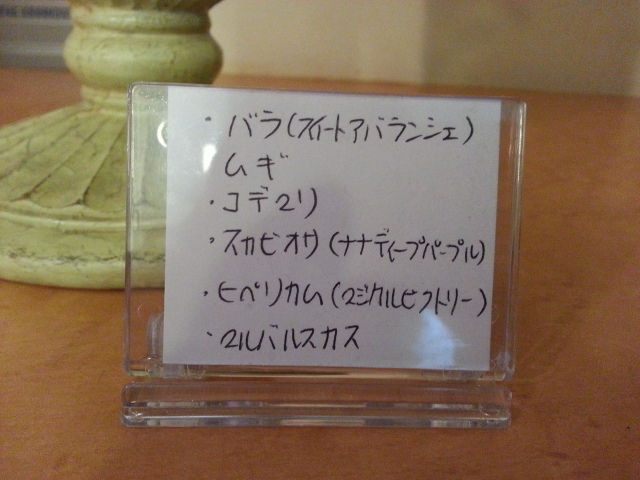 ・バラ(スイートアバランシェ)
ムギ
・コデマリ
・スカビオサ(ナナディープパープル)
・ヒペリカム(マジカルビクトリー)
・マルバルスカス